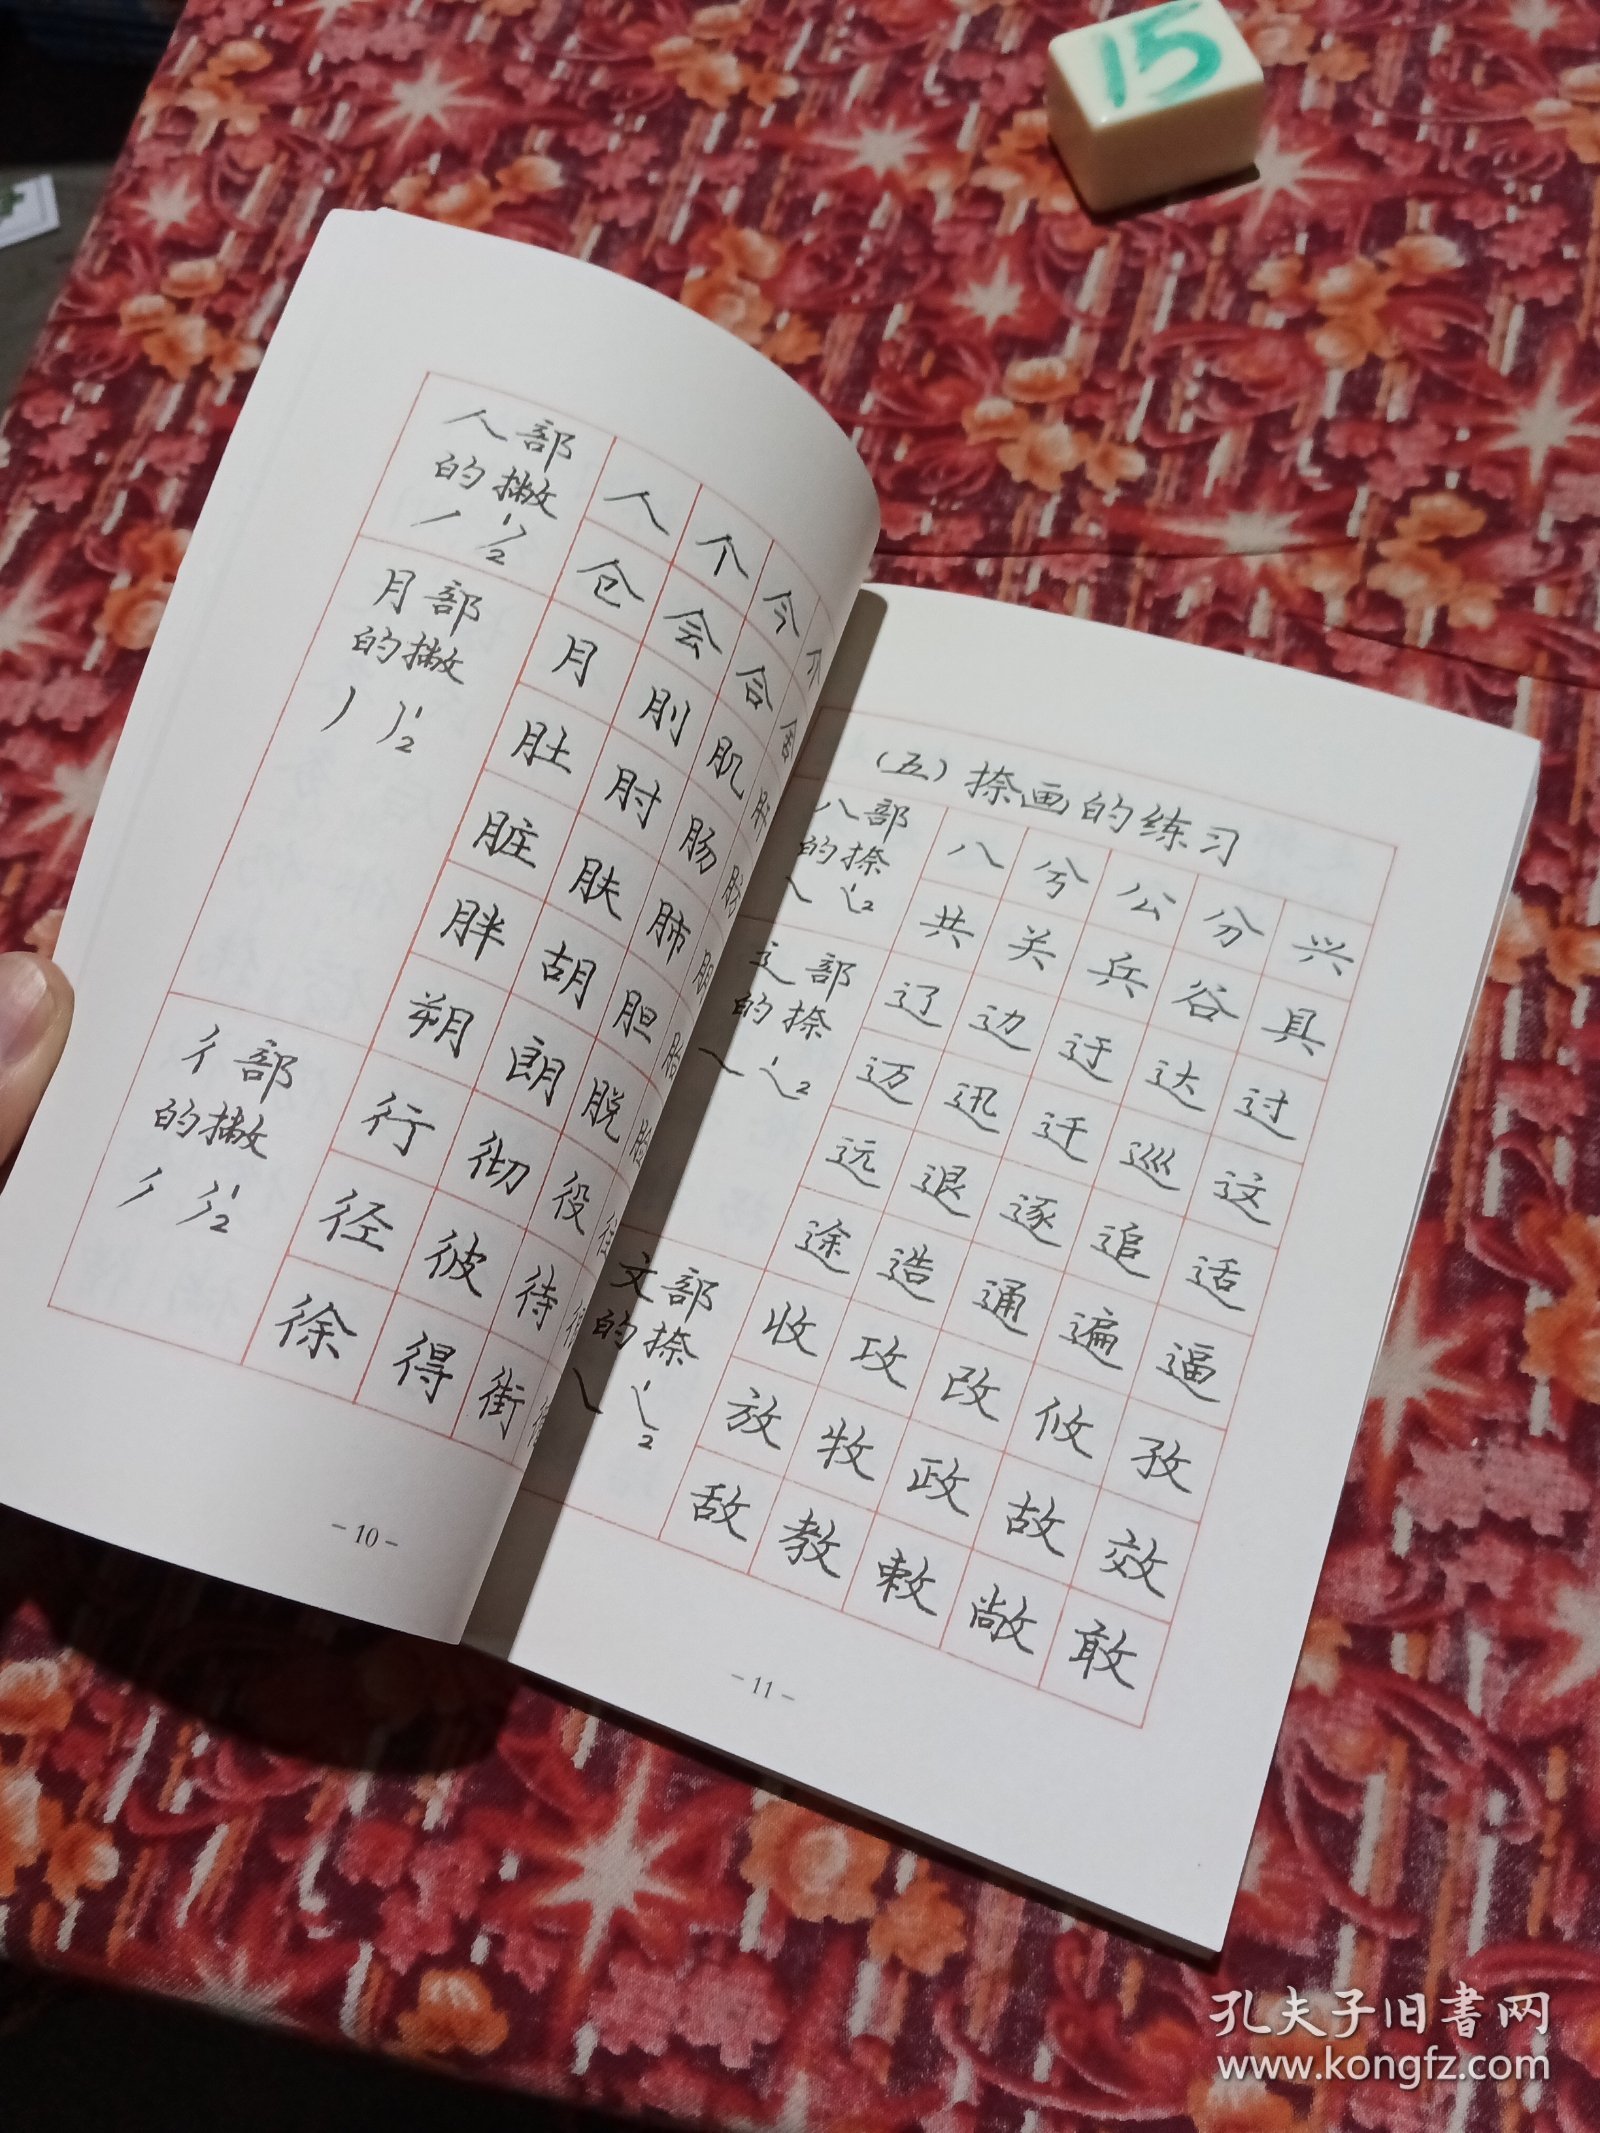 15
人部
的撇
丿 1 2
人 个 今
仓 会 合
月部
的撇
丿 1 2
月 刖 肌
肚 肘 肠
脏 肤 肺
胖 胡 胆
朔 朗 脱
彳部
的撇
丿 1 2
行 彻 役
径 彼 待
徐 得 街
－10－
（五）捺画的练习
八部
的捺
㇏ 1 2
八 兮 公 分 兴
共 关 兵 谷 具
辶部
的捺
㇏ 1 2
辽 边 迂 达 过
迈 迅 迁 巡 这
远 退 逐 追 适
途 造 通 遍 逼
文部
的捺
㇏ 1 2
收 攻 改 攸 孜
放 牧 政 故 效
敌 教 敕 敞 敢
－11－
孔夫子旧书网
www.kongfz.com